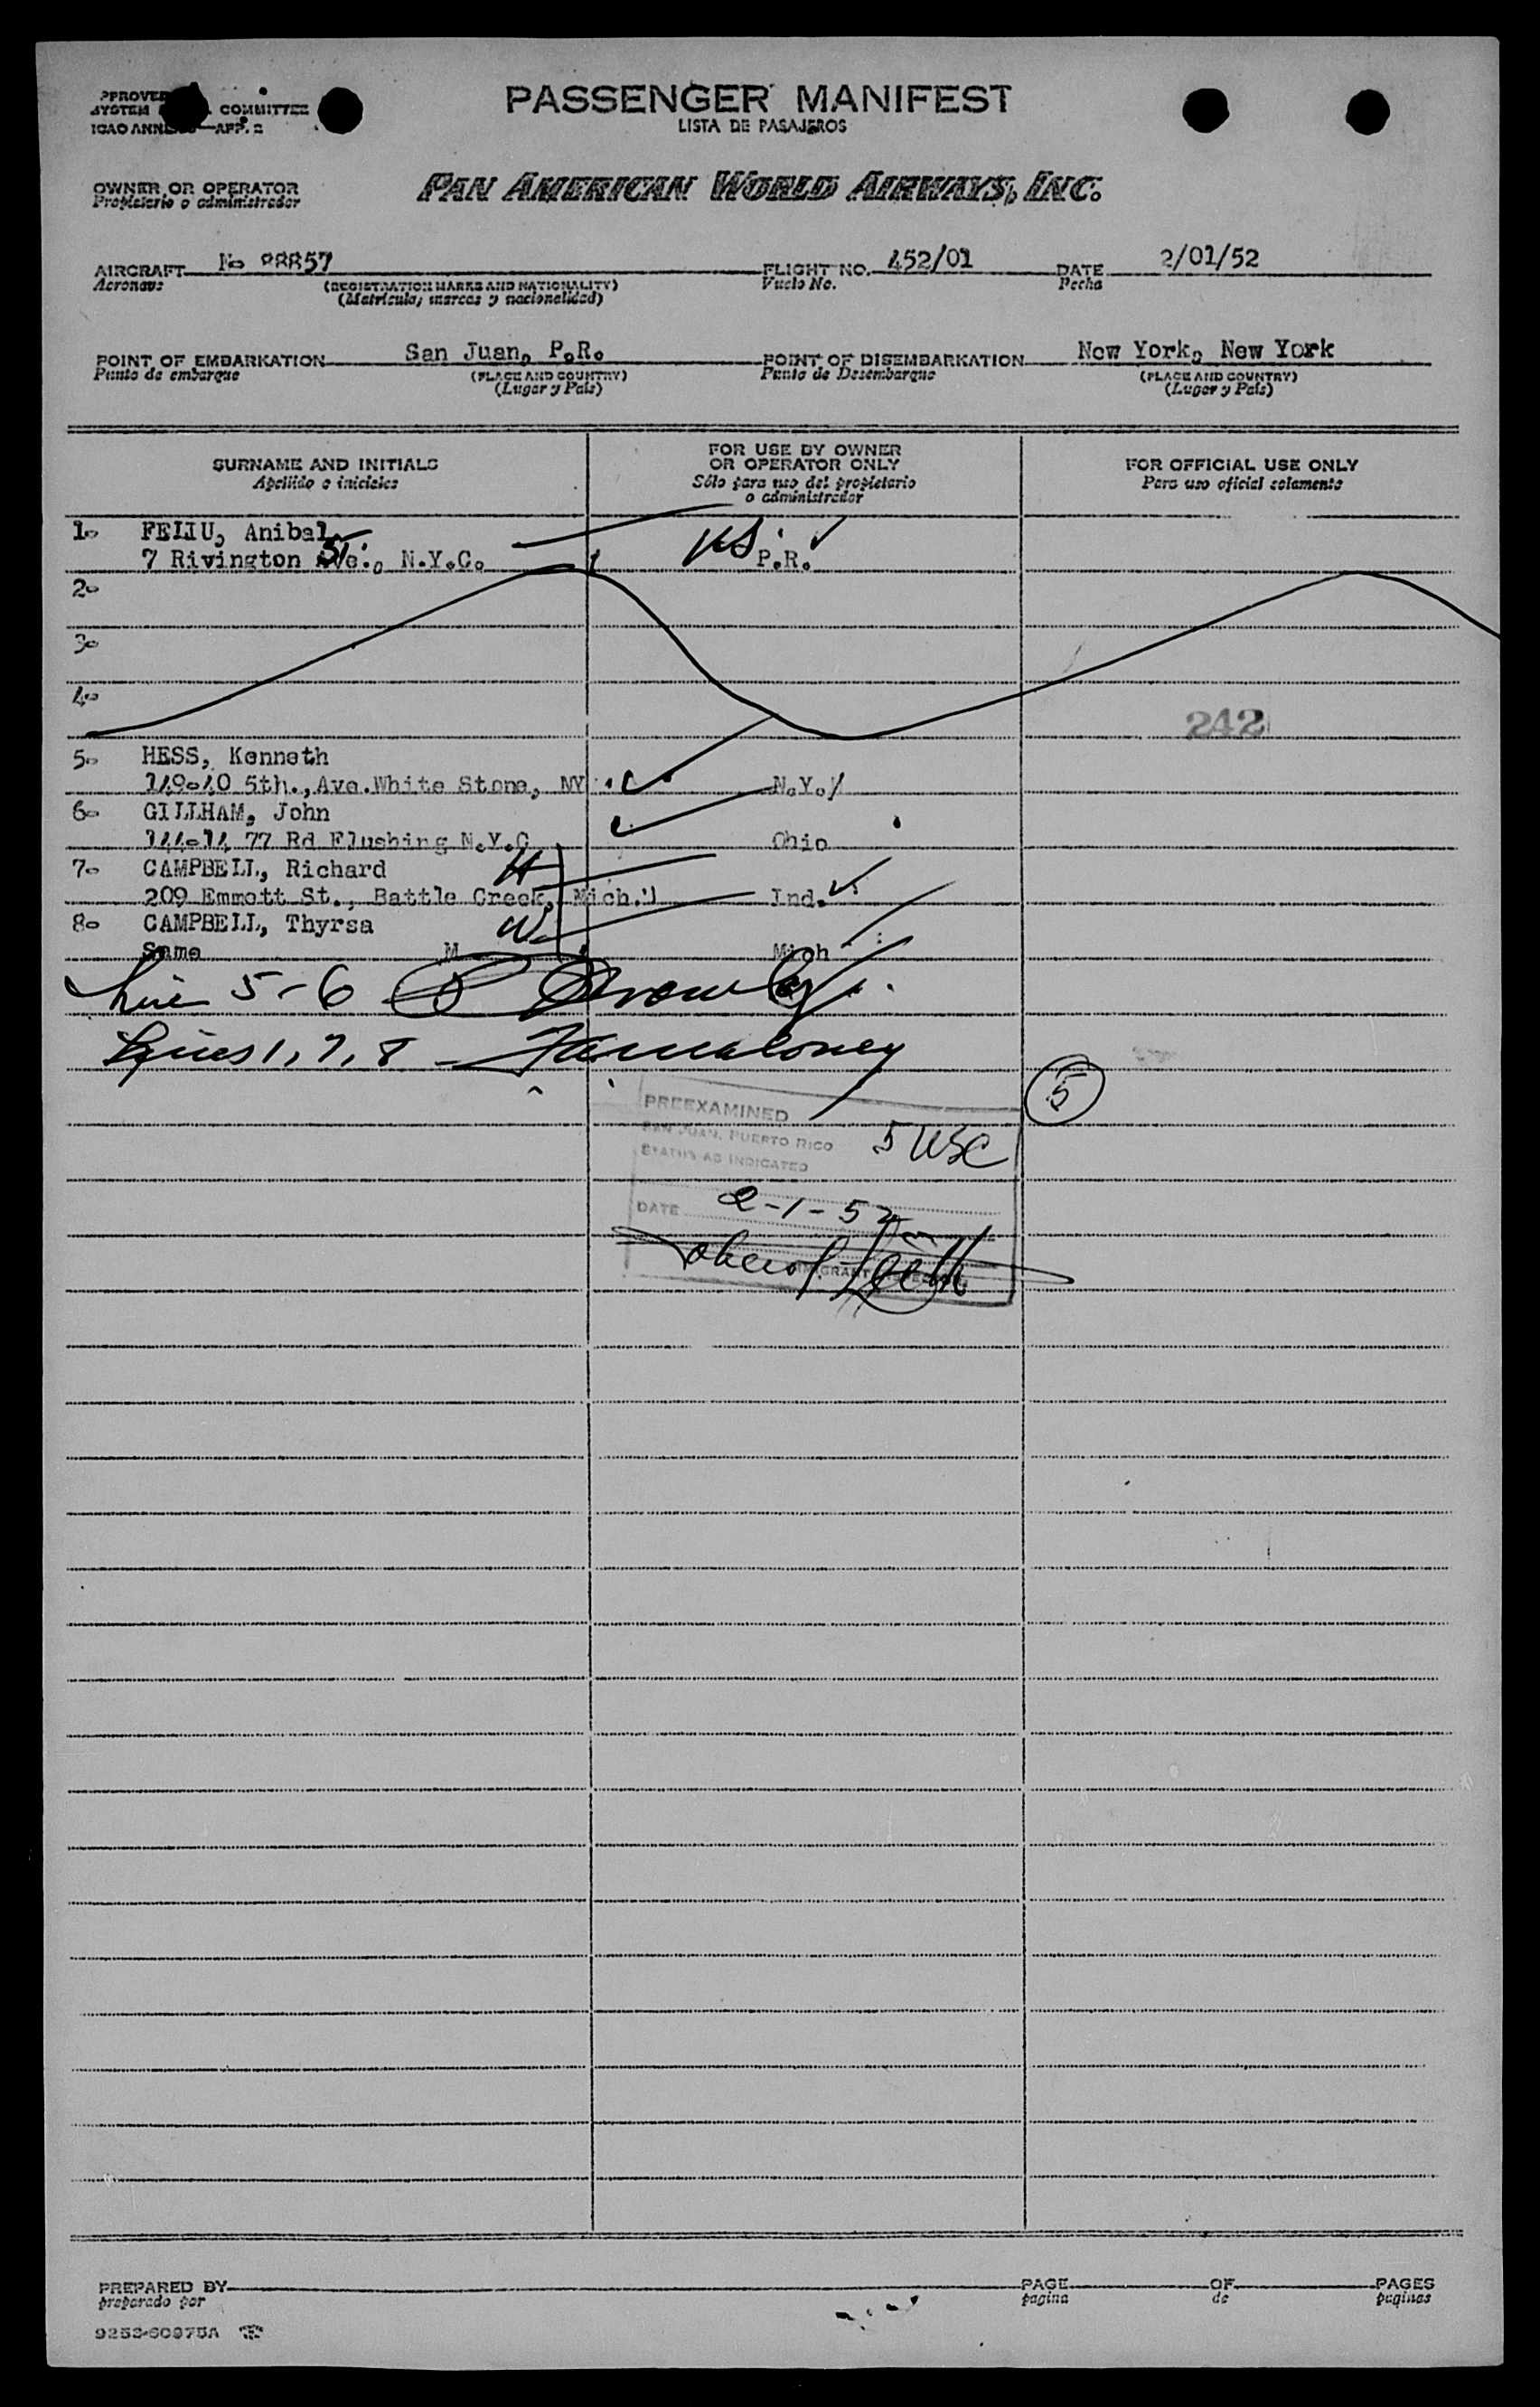 PASSENGER MANIFEST
LISTA DE PASAJEROS
COMMITTEE
OWNER OR OPERATOR
Propietario o administrador
PAN AMERICAN WORLD AIRWAYS, INC.
AIRCRAFT No 88857 FLIGHT NO. 452/01 DATE 2/01/52
Aeronave (REGISTRATION MARKS AND NATIONALITY) Vuelo No. Fecha
(Matrícula, marcas y nacionalidad)
POINT OF EMBARKATION San Juan, P.R. POINT OF DISEMBARKATION New York, New York
Punto de embarque (PLACE AND COUNTRY) Punto de Desembarque (PLACE AND COUNTRY)
(Lugar y País) (Lugar y País)
SURNAME AND INITIALS
Apellido e iniciales
FOR USE BY OWNER
OR OPERATOR ONLY
Sólo para uso del propietario
o administrador
FOR OFFICIAL USE ONLY
Para uso oficial solamente
1- FELIU, Anibal
7 Rivington Ave., St. N.Y.C. US P.R.
2-
3-
4-
242
5- HESS, Kenneth
149-40 5th.,Ave.White Stone, NY N.Y.
6- GILLHAM, John
144-14 77 Rd Flushing N.Y.C Ohio
7- CAMPBELL, Richard H
209 Emmett St., Battle Creek, Mich. Ind.
8- CAMPBELL, Thyrsa W
Same M Mich
Line 5-6
Lines 1, 7, 8 - Maloney
5
PREEXAMINED
SAN JUAN, PUERTO RICO 5 USC
STATUS AS INDICATED
DATE 2-1-52
PREPARED BY PAGE OF PAGES
preparado por pagina de paginas
9253-60975A